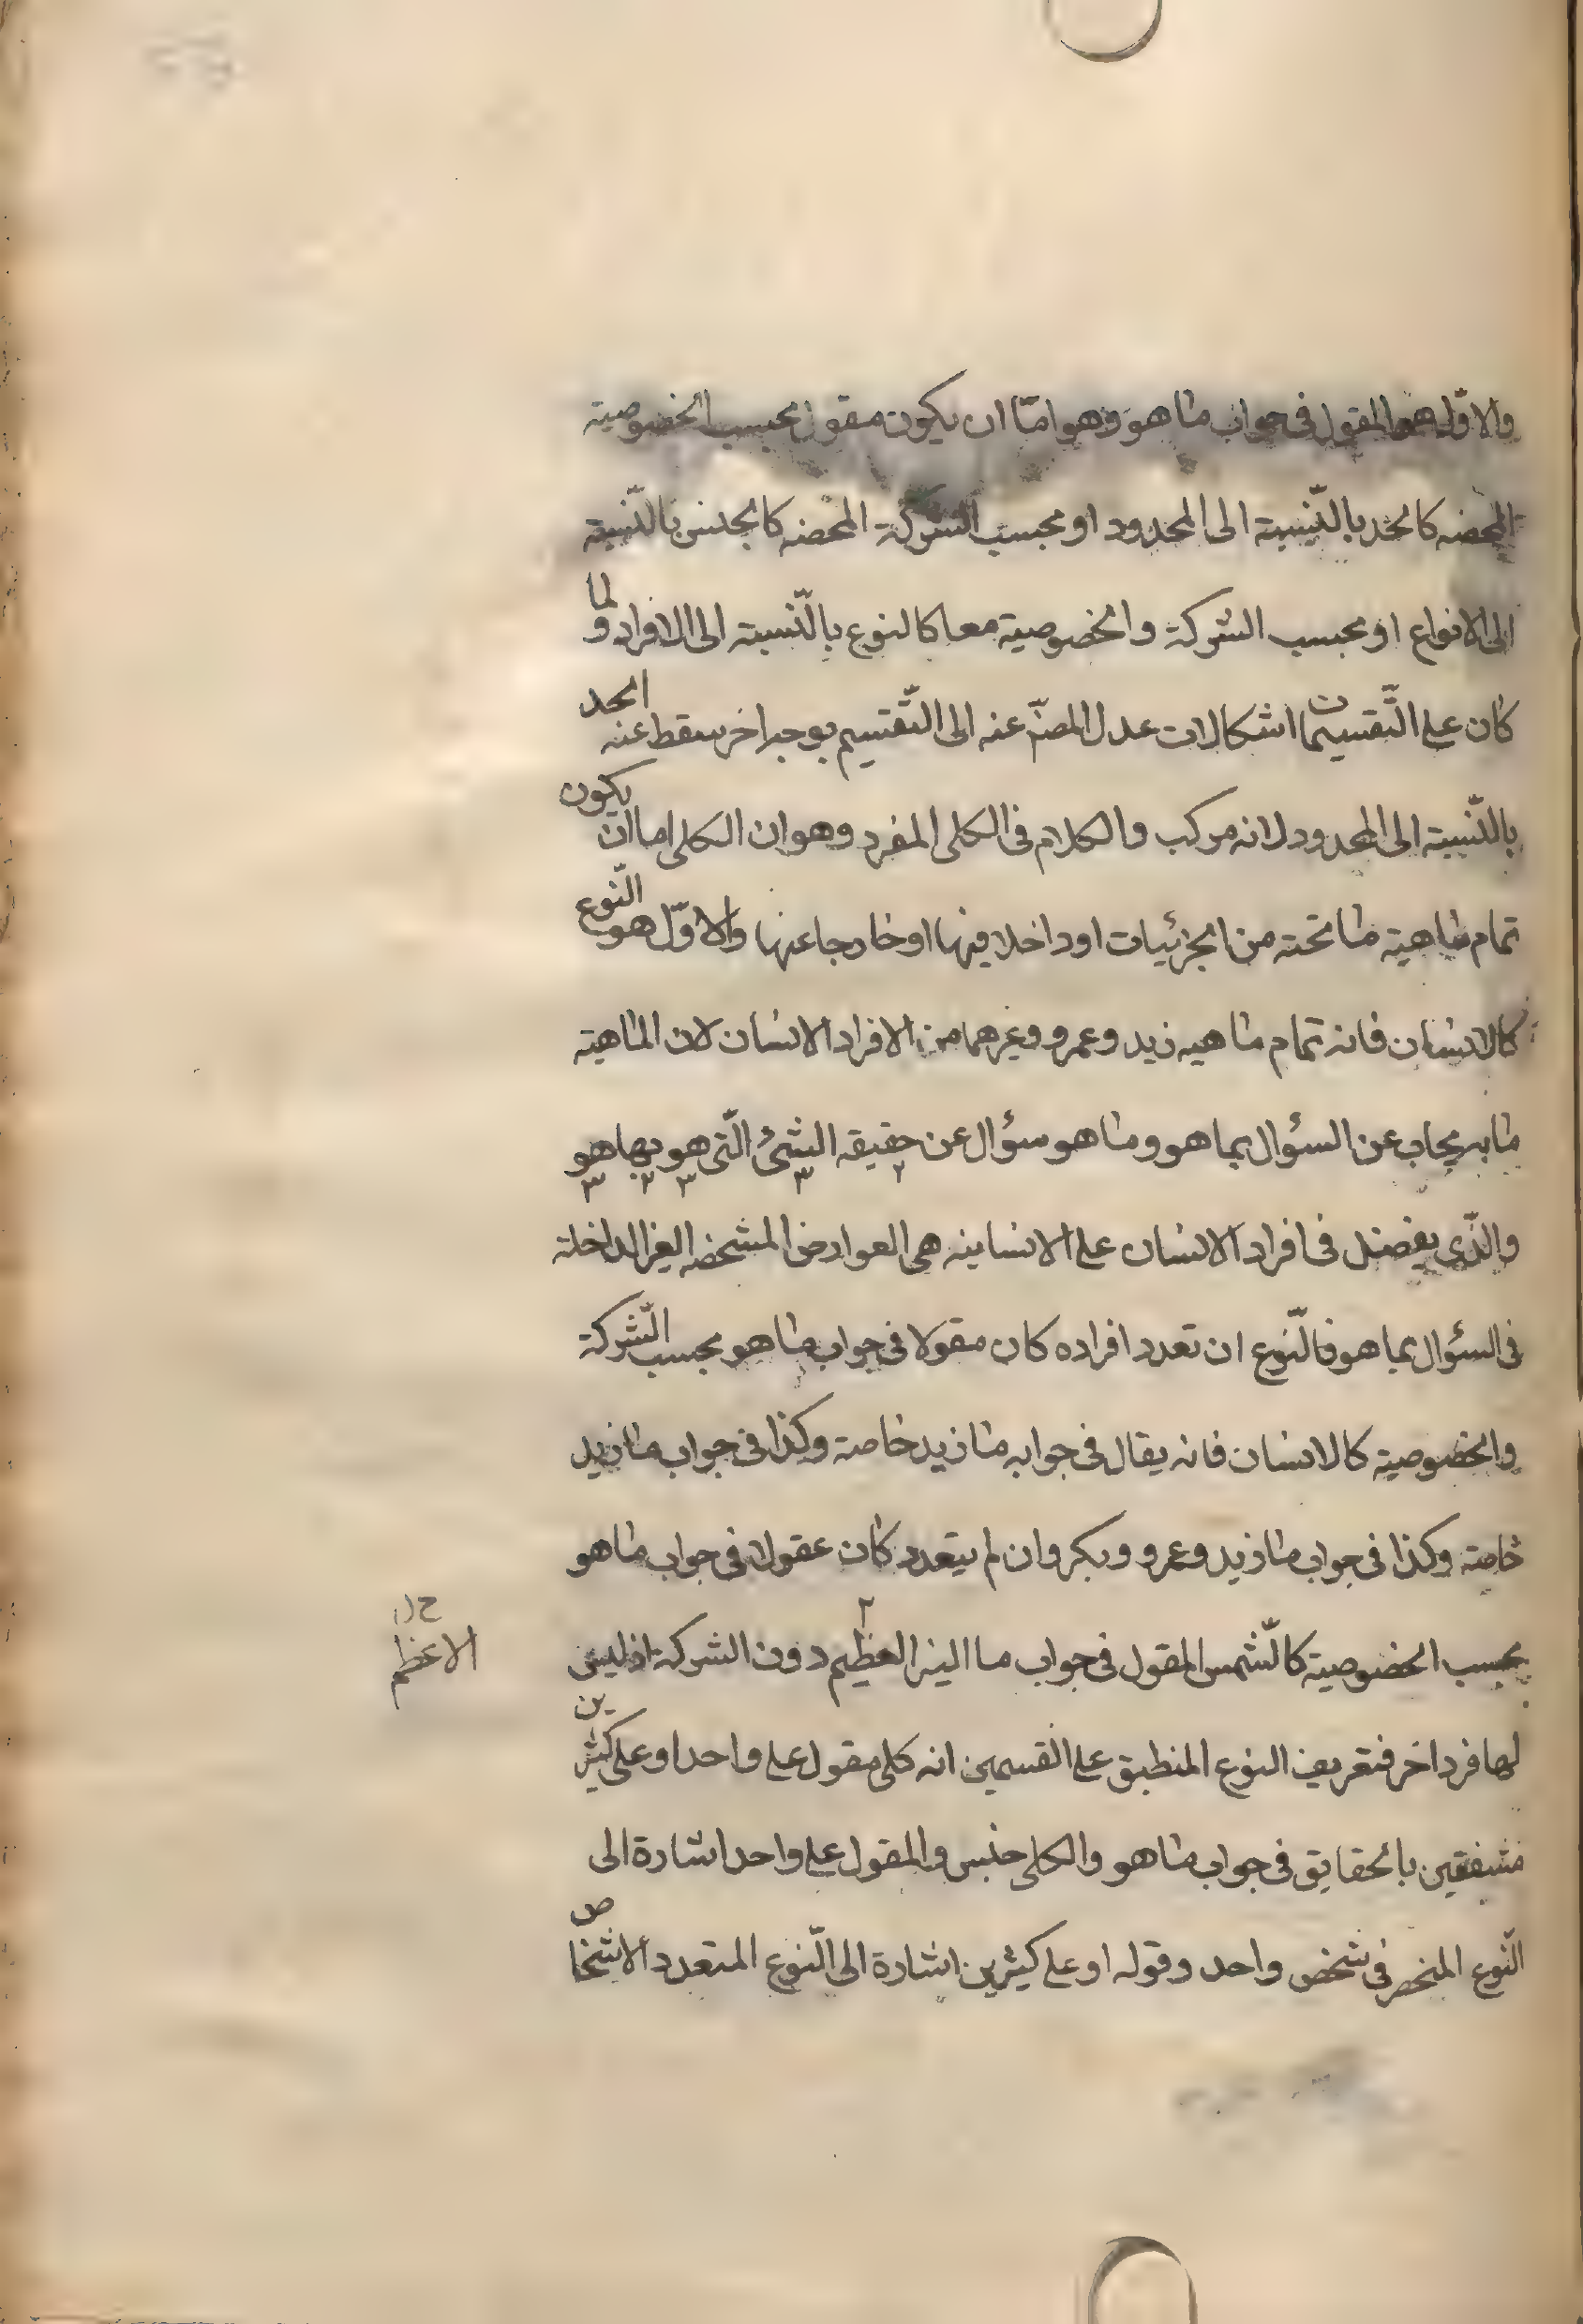 والاوّل هو المقول فى جواب ما هو وهو امّا ان يكون مقول بحسب الخصوصية
المحضه كالحد بالنّسبة الى المحدود او بحسب الشركة المحضه كالجنس بالنّسبة
الى الانواع او بحسب الشركة والخصوصية معا كالنوع بالنّسبة الى الافراد ولما
كان على التّقسيمات اشكالات عدل المصنّم عنه الى التّقسيم بوجه اخر سقط عنه الحد
بالنّسبة الى المحدود لانه مركب والكلام فى الكلى المفرد وهو ان الكلى اما ان يكون
تمام ماهية ما تحته من الجزئيات او داخلا فيها او خارجا عنها والاوّل هو النّوع
كالانسان فانه تمام ماهيه زيد وعمرو وغيرهما من الافراد الانسان لان الماهية
ما به يجاب عن السؤال بما هو وما هو سؤال عن حقيقه الشئ الّتى هو بها هو
والّذى يفضل فى افراد الانسان على الانسانيه هى العوارض المشخصه الغير الداخلة
فى السئوال بما هو فالنّوع ان تعدد افراده كان مقولا فى جواب ما هو بحسب الّشركة
والخضوصية كالانسان فانه يقال فى جوابه ما زيد خاصة وكذا فى جواب ما زيد
خاصة وكذا فى جواب ما زيد وعمرو وبكر وان لم يتعدد كان عقولا فى جواب ما هو
بحسب الخضوصية كالّشمس المقول فى جواب ما النير العظيم دون الشركة اذ ليس
الاعظم
لها فرد اخر فتعريف النوع المنطبق على القسمين انه كلى مقول على واحد او على كثيرين
متفقين بالحقايق فى جواب ما هو والكلى جنس والمقول على واحد اشارة الى
النّوع المنحصر فى شخص واحد وقوله او على كثيرين اشارة الى النّوع المتعدد الاشخاص